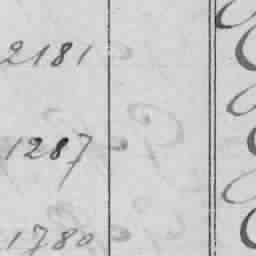 2181
1287
1780